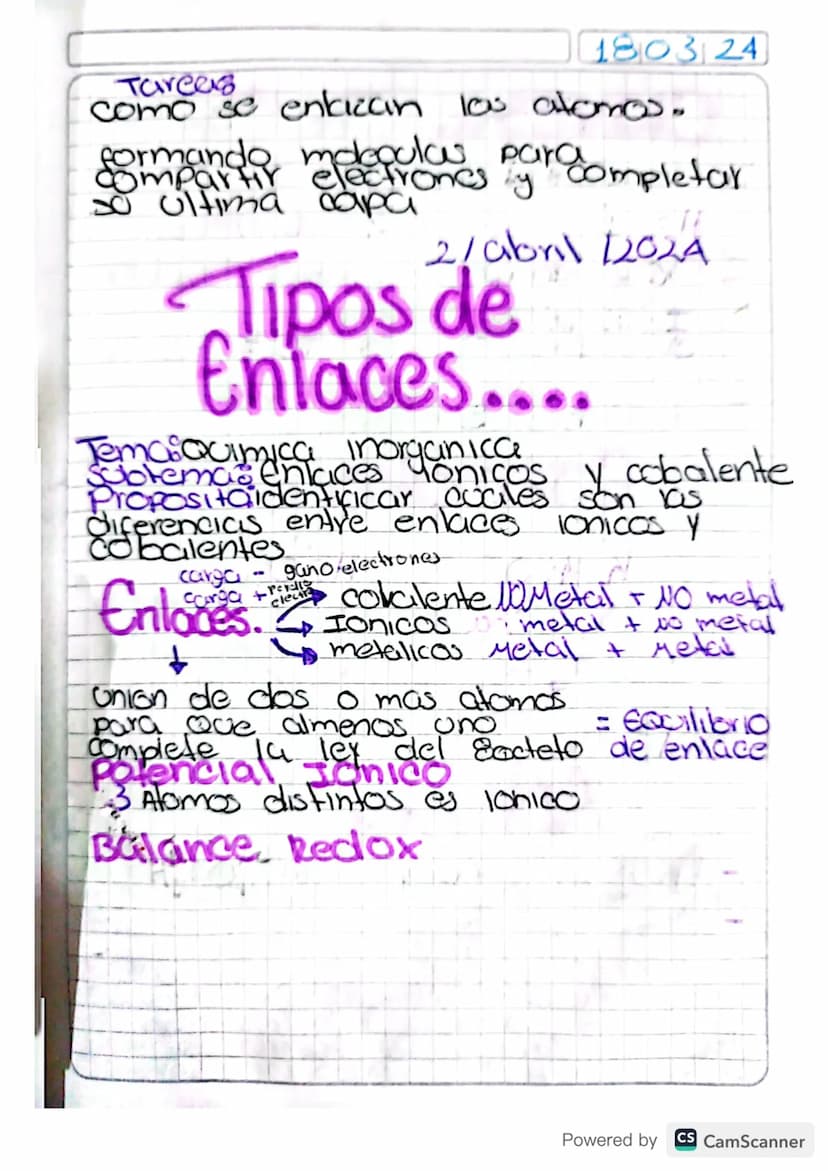 18 03 24
Tareas
como se enlazan los atomos.
formando moleculas para
compartir electrones y completar
su ultima capa
2/abril/2024
Tipos de
Enlaces....
Tema: Quimica inorganica
Subtema: Enlaces iónicos y cobalente
Proposito: identificar cuales son las
diferencias entre enlaces ionicos y
cobalentes
carga - gano electrones
carga + perdio electr
Enlaces. cobalente NO Metal + NO metal
Ionicos metal + no metal
metelicos Metal + Metal
union de dos o mas atomos
para que almenos uno = Equilibrio
complete la ley del 8octeto de enlace
Potencial Iónico
3 Atomos distintos es ionico
Balance Redox
Powered by CS CamScanner